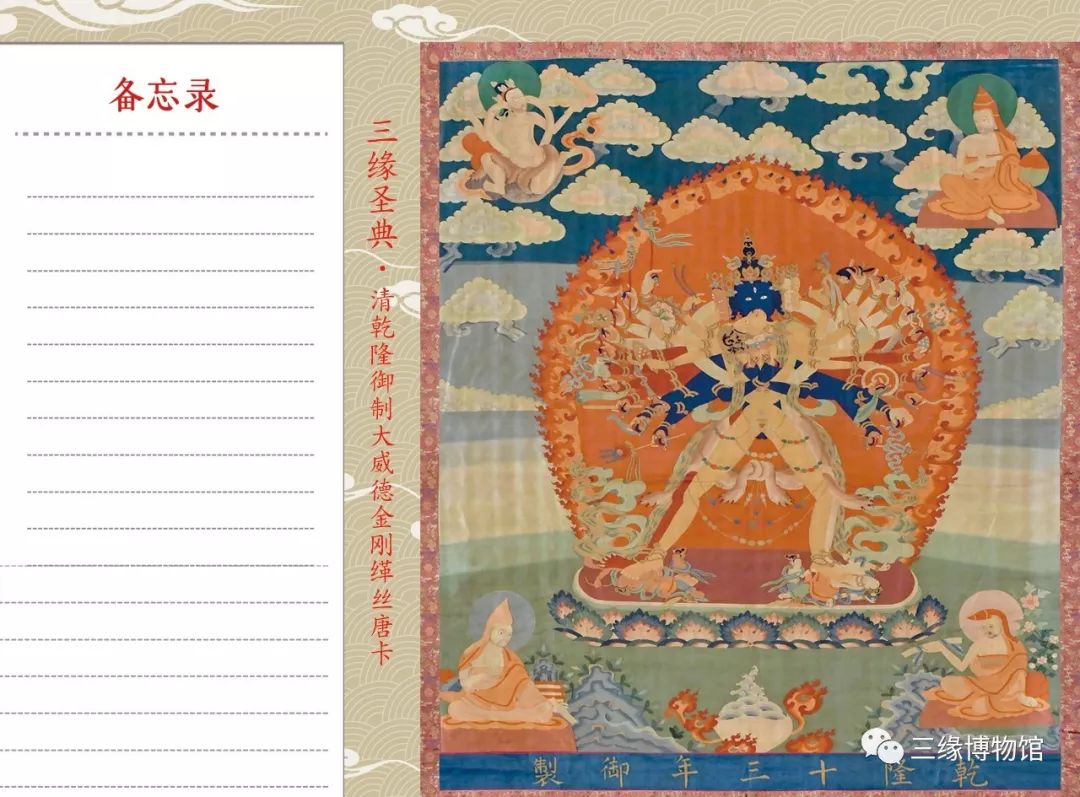 备忘录
三缘圣典·清乾隆御制大威德金刚缂丝唐卡
製御年三十隆乾
三缘博物馆